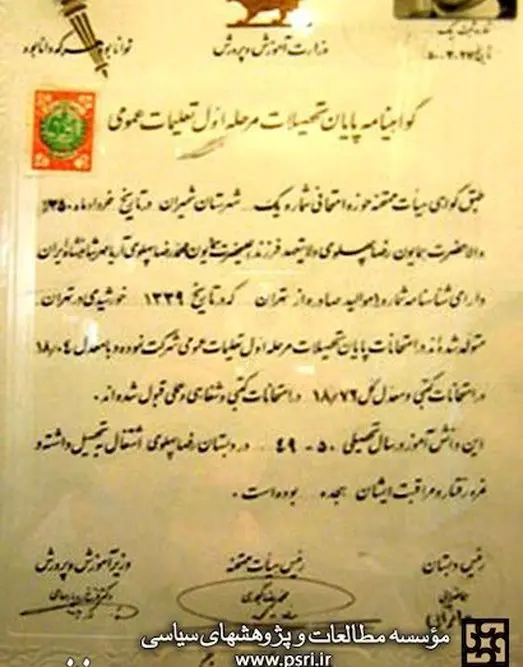 شماره ثبت یک
توانا بود هر که دانا بود
وزارت آموزش و پرورش
تاریخ ۵۰.۳.۲۲
گواهینامه پایان تحصیلات مرحله اول تعلیمات عمومی
طبق گواهی هیأت ممتحنه حوزه امتحانی شماره یک شهرستان شمیران در تاریخ خرداد ماه ۱۳۵۰
والاحضرت همایون رضا پهلوی ولایتعهد فرزند اعلیحضرت همایون محمدرضا پهلوی آریامهر شاهنشاه ایران
دارای شناسنامه شماره صادره از تهران که در تاریخ ۱۳۳۹ خورشیدی در تهران
متولد شده‌اند در امتحانات پایان تحصیلات مرحله اول تعلیمات عمومی شرکت نموده و با معدل ۱۸/۰۴
در امتحانات کتبی و معدل کل ۱۸/۷۶ در امتحانات کتبی و شفاهی و عملی قبول شده‌اند .
این دانش آموز در سال تحصیلی ۵۰ - ۴۹ در دبستان رضا پهلوی اشتغال به تحصیل داشته و
نمره رفتار و مراقبت ایشان هجده بوده است .
رئیس دبستان
رئیس هیأت ممتحنه
وزیر آموزش و پرورش
مؤسسه مطالعات و پژوهشهای سیاسی
www.psri.ir